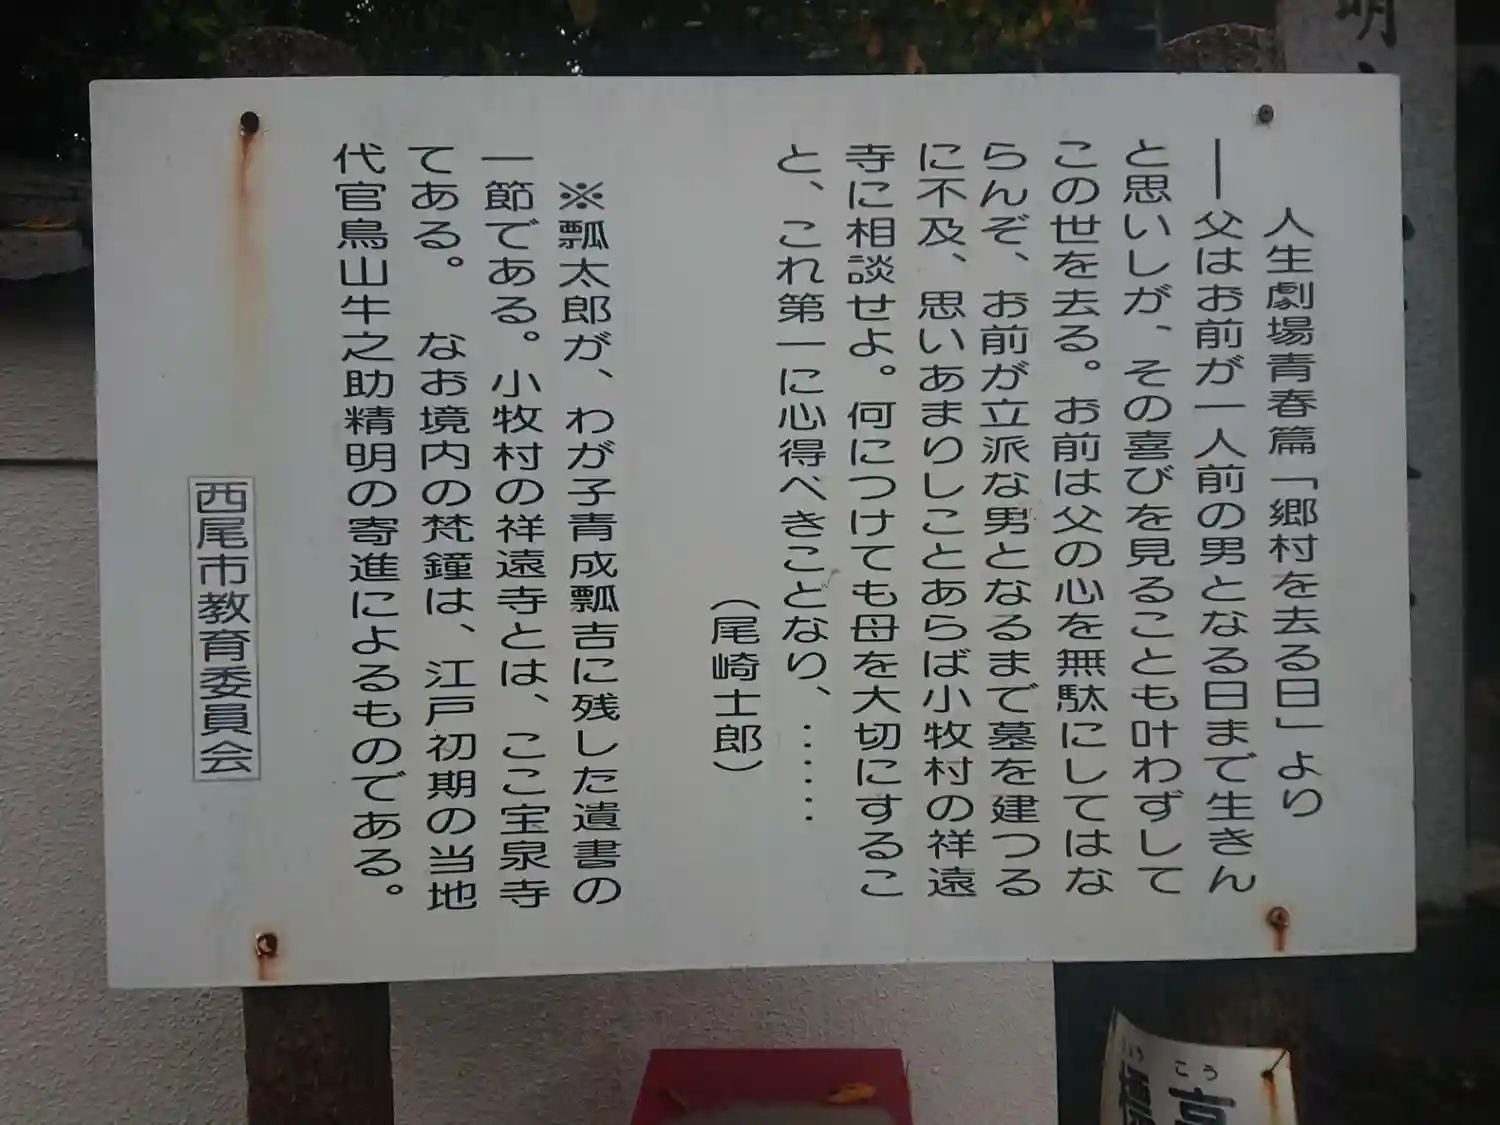 人生劇場青春篇「郷村を去る日」より
――父はお前が一人前の男となる日まで生きん
と思いしが、その喜びを見ることも叶わずして
この世を去る。お前は父の心を無駄にしてはな
らんぞ、お前が立派な男となるまで墓を建つる
に不及、思いあまりしことあらば小牧村の祥遠
寺に相談せよ。何につけても母を大切にするこ
と、これ第一に心得べきことなり、……
（尾崎士郎）
※瓢太郎が、わが子青成瓢吉に残した遺書の
一節である。小牧村の祥遠寺とは、ここ宝泉寺
てある。　なお境内の梵鐘は、江戸初期の当地
代官鳥山牛之助精明の寄進によるものである。
西尾市教育委員会
明
こう